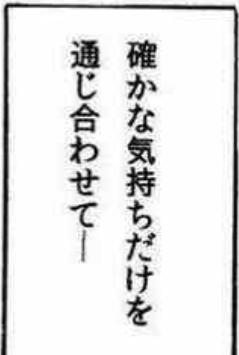 確かな気持ちだけを
通じ合わせて―